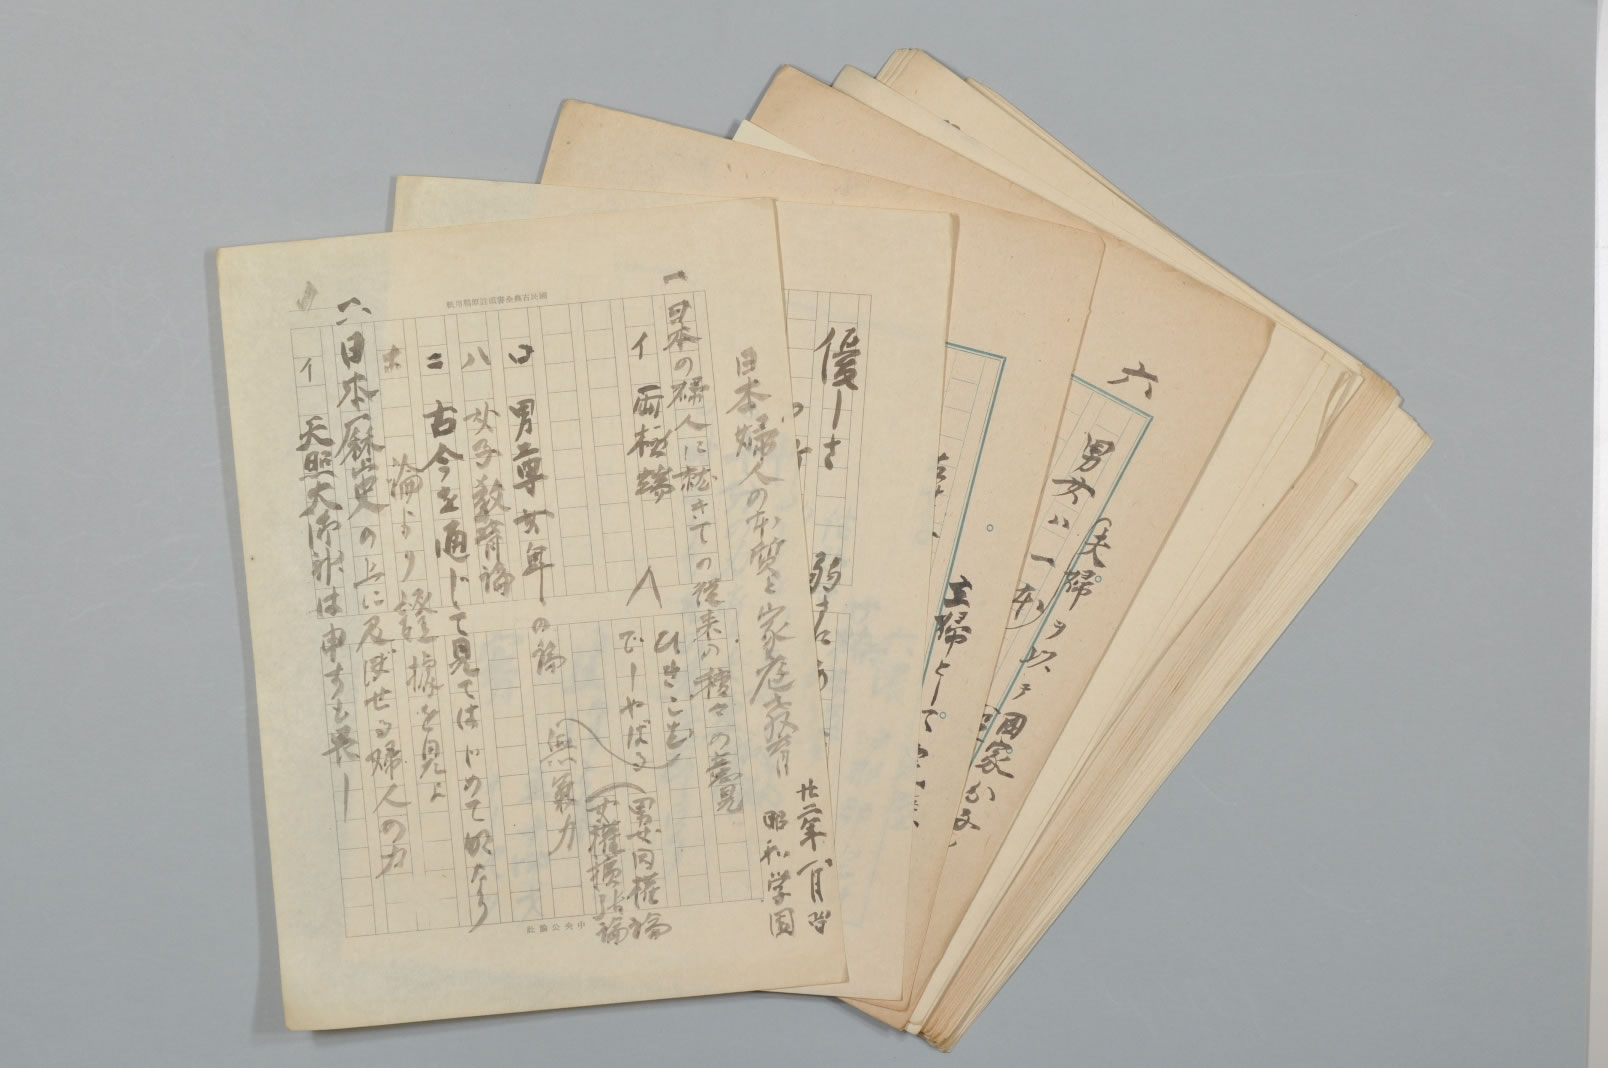 日本婦人の本質と家庭教育
廿二年八月
昭和学園
一 日本の婦人に就きての従来の種々の意見
イ 両極端
ひきこむ
でしやばる
男女同権論
女権拡張論
ロ 男尊女卑の論
無気力
ハ 女子教育論
ニ 古今を通じて見てはじめて明なり
ホ 論より證據を見よ
二 日本歴史の上に及ぼせる婦人の力
イ 天照大御神は申すも畏し
國民古典全書編註原稿用紙
中央公論社
優しさ
弱さ
主婦として
六
男女ハ一
夫婦ヲ以テ國家